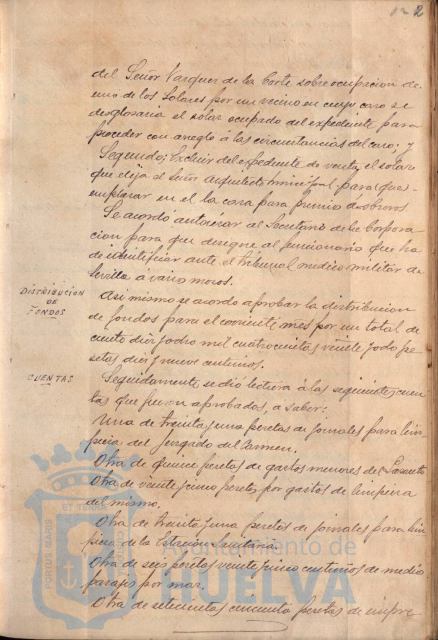 2
del Señor Vazquez de la Corte sobre ocupacion de
uno de los Solares por un vecino en cuyo caso se
desglosaria el solar ocupado del expediente para
proceder con arreglo á las circunstancias del caso; y
Segundo; Excluir del expediente de venta, el solar
que elija el Señor Arquitecto municipal para
emplazar en el la casa para premio á obreros
Se acordó autorizar al Secretario de la Corpora-
cion para que designe al funcionario que ha
de identificar ante el Tribunal medico militar de
Sevilla á varios mozos.
DISTRIBUCION
DE
FONDOS
Asi mismo se acordo aprobar la distribucion
de fondos para el corriente mes por un total de
ciento diez y ocho mil cuatrocientas veinte y dos pe-
setas diez y nueve centimos.
CUENTAS
Seguidamente se dio lectura á las siguientes cuen-
tas que fueron aprobadas, a saber:
Una de treinta y una pesetas de jornales para lim-
pieza del Juzgado del Carmen.
Otra de quince pesetas de gastos menores de
Otra de veinte y cinco pesetas por gastos de limpieza
del mismo.
Otra de treinta y una pesetas de jornales para lim-
pieza de la Estacion Sanitaria.
Otra de seis pesetas veinte y cinco centimos de medio
pasaje por mar.
Otra de setecientas cincuenta pesetas de impre-
Ayuntamiento de
HUELVA
PORTUS MARIS
ET TERRAE
CUSTODIA